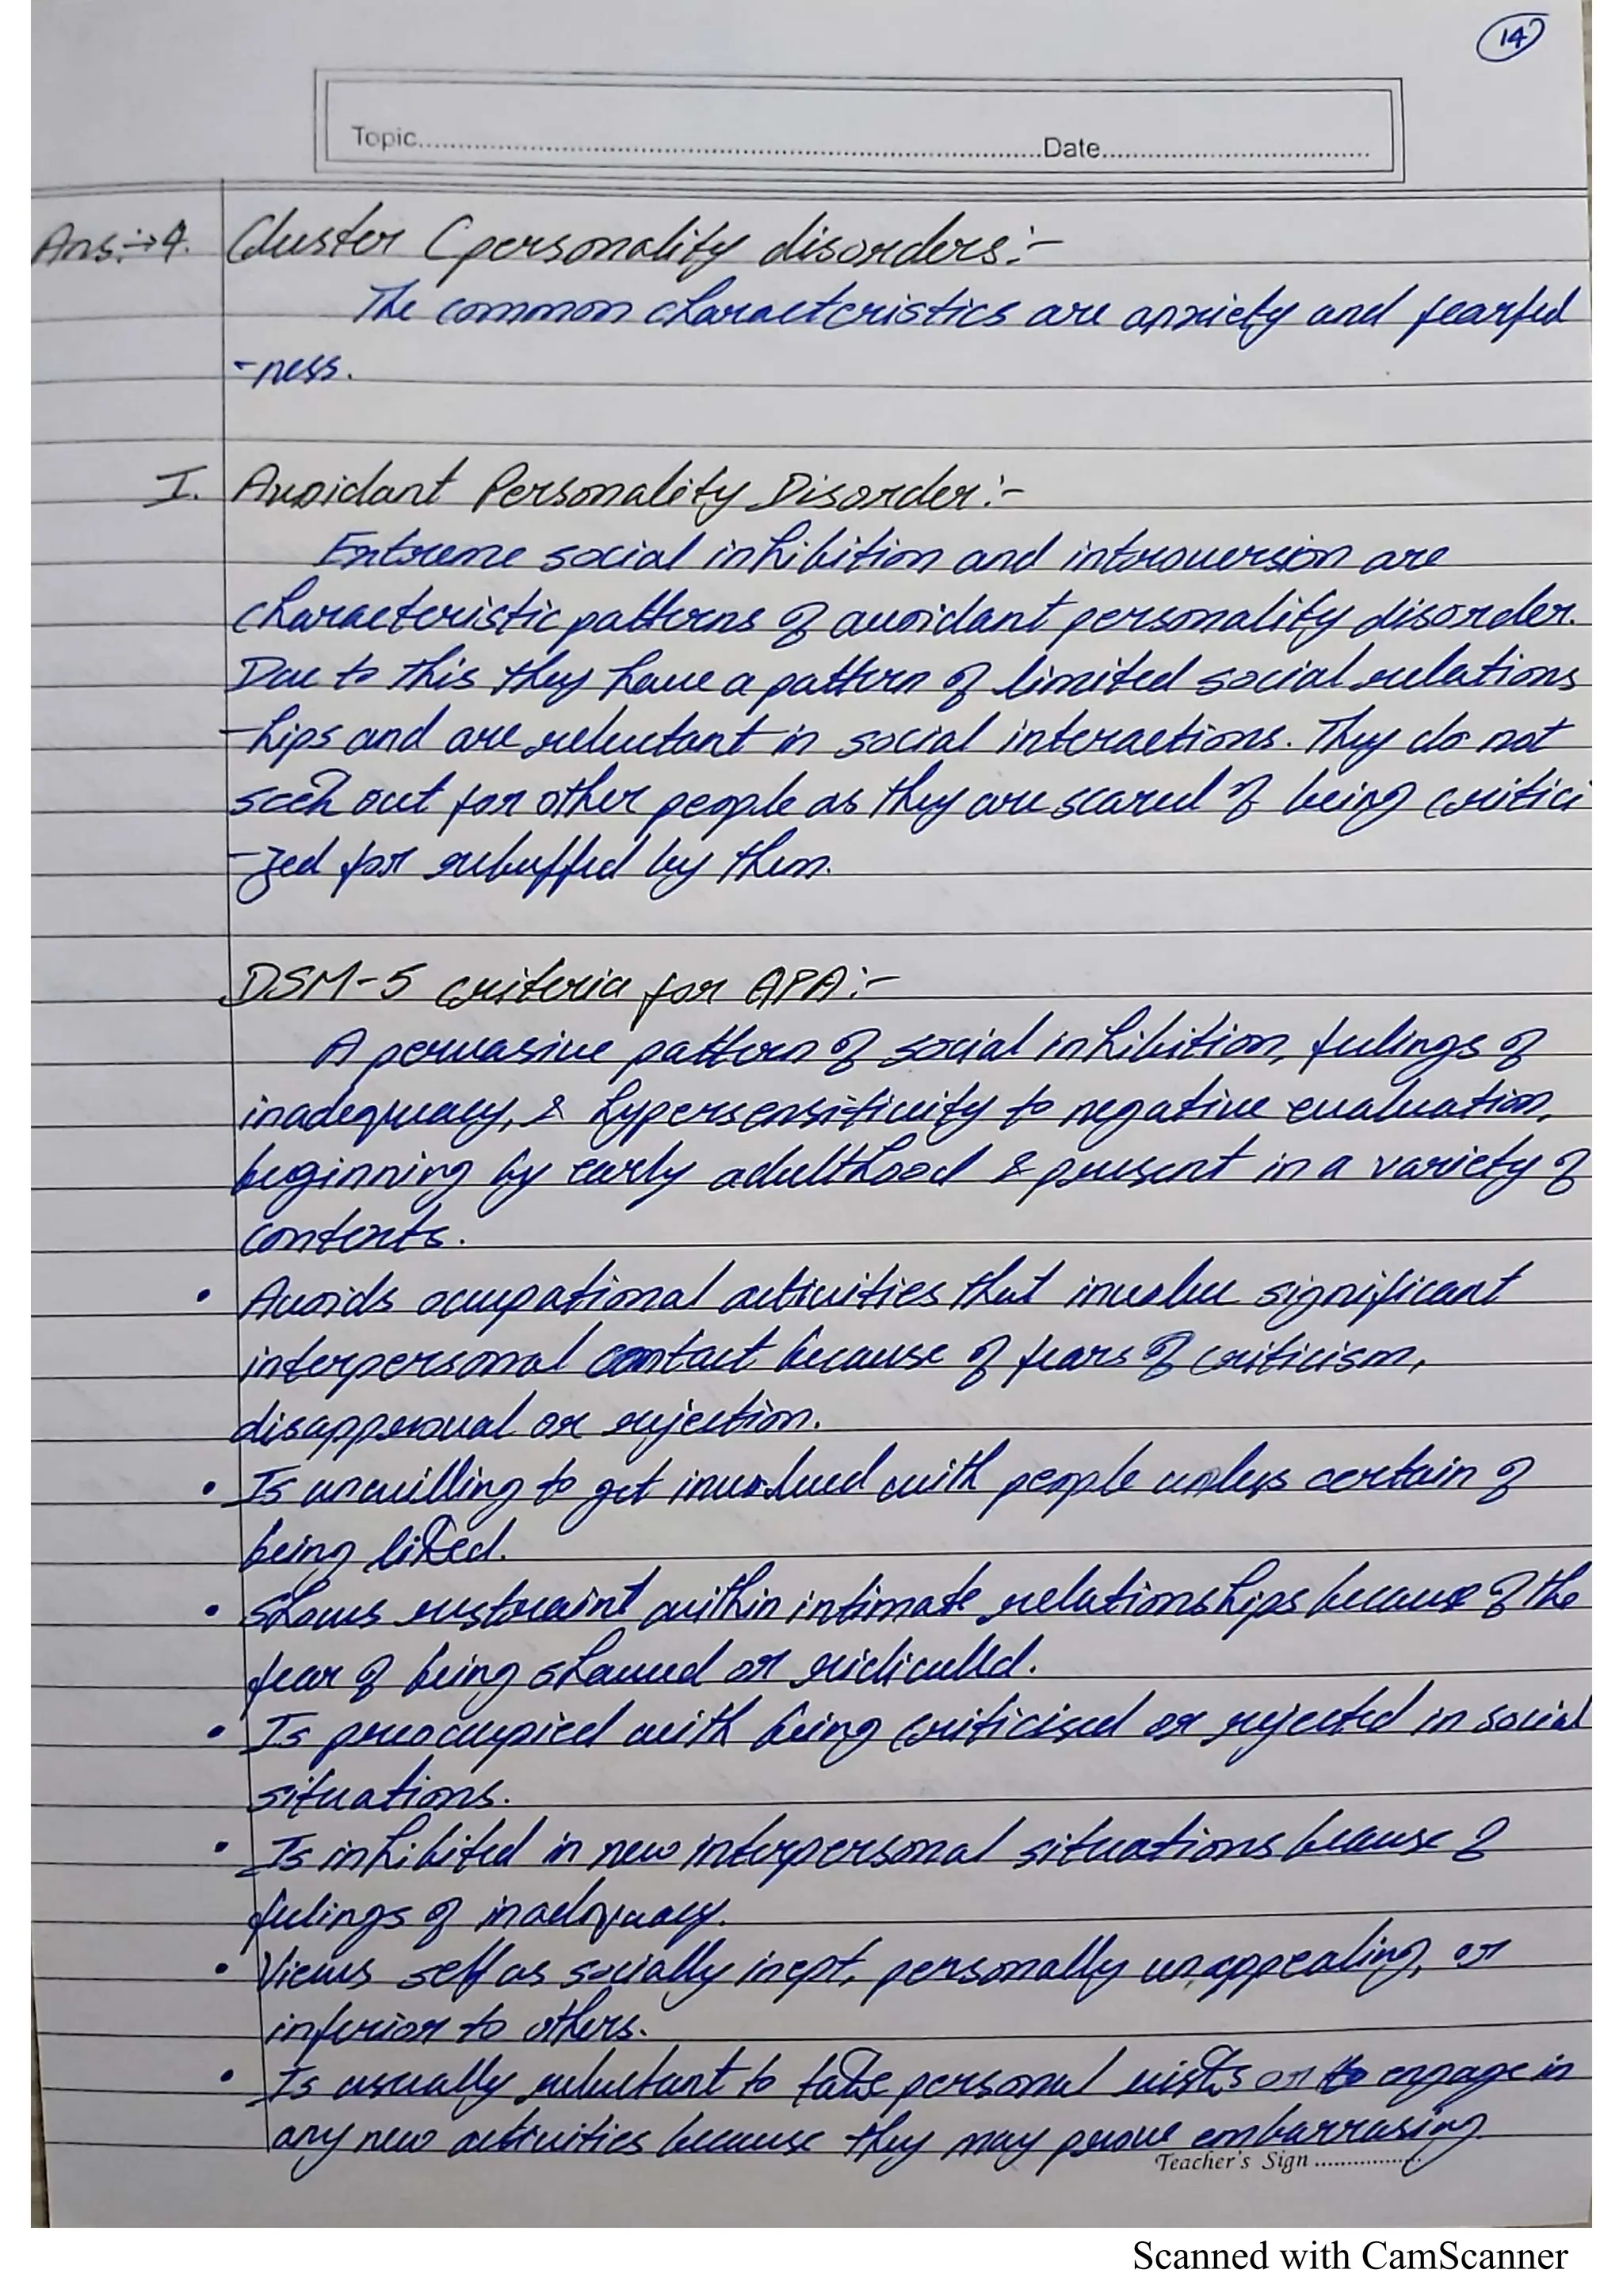 14
Topic..........Date..........
Ans:→4. Cluster C personality disorders:-
The common characteristics are anxiety and fearful
-ness.
I. Avoidant Personality Disorder:-
Extreme social inhibition and introversion are
characteristic patterns of avoidant personality disorder.
Due to this they have a pattern of limited social relations
-hips and are reluctant in social interactions. They do not
seek out for other people as they are scared of being critici
-zed for rebuffed by them.
DSM-5 criteria for APA:-
A pervasive pattern of social inhibition, feelings of
inadequacy, & hypersensitivity to negative evaluation,
beginning by early adulthood & present in a variety of
contexts.
• Avoids occupational activities that involve significant
interpersonal contact because of fears of criticism,
disapproval or rejection.
• Is unwilling to get involved with people unless certain of
being liked.
• Shows restraint within intimate relationships because of the
fear of being shamed or ridiculed.
• Is preoccupied with being criticised or rejected in social
situations.
• Is inhibited in new interpersonal situations because of
feelings of inadequacy.
• Views self as socially inept, personally unappealing, or
inferior to others.
• Is usually reluctant to take personal risks or to engage in
any new activities because they may prove embarrasing.
Teacher's Sign ..........
Scanned with CamScanner